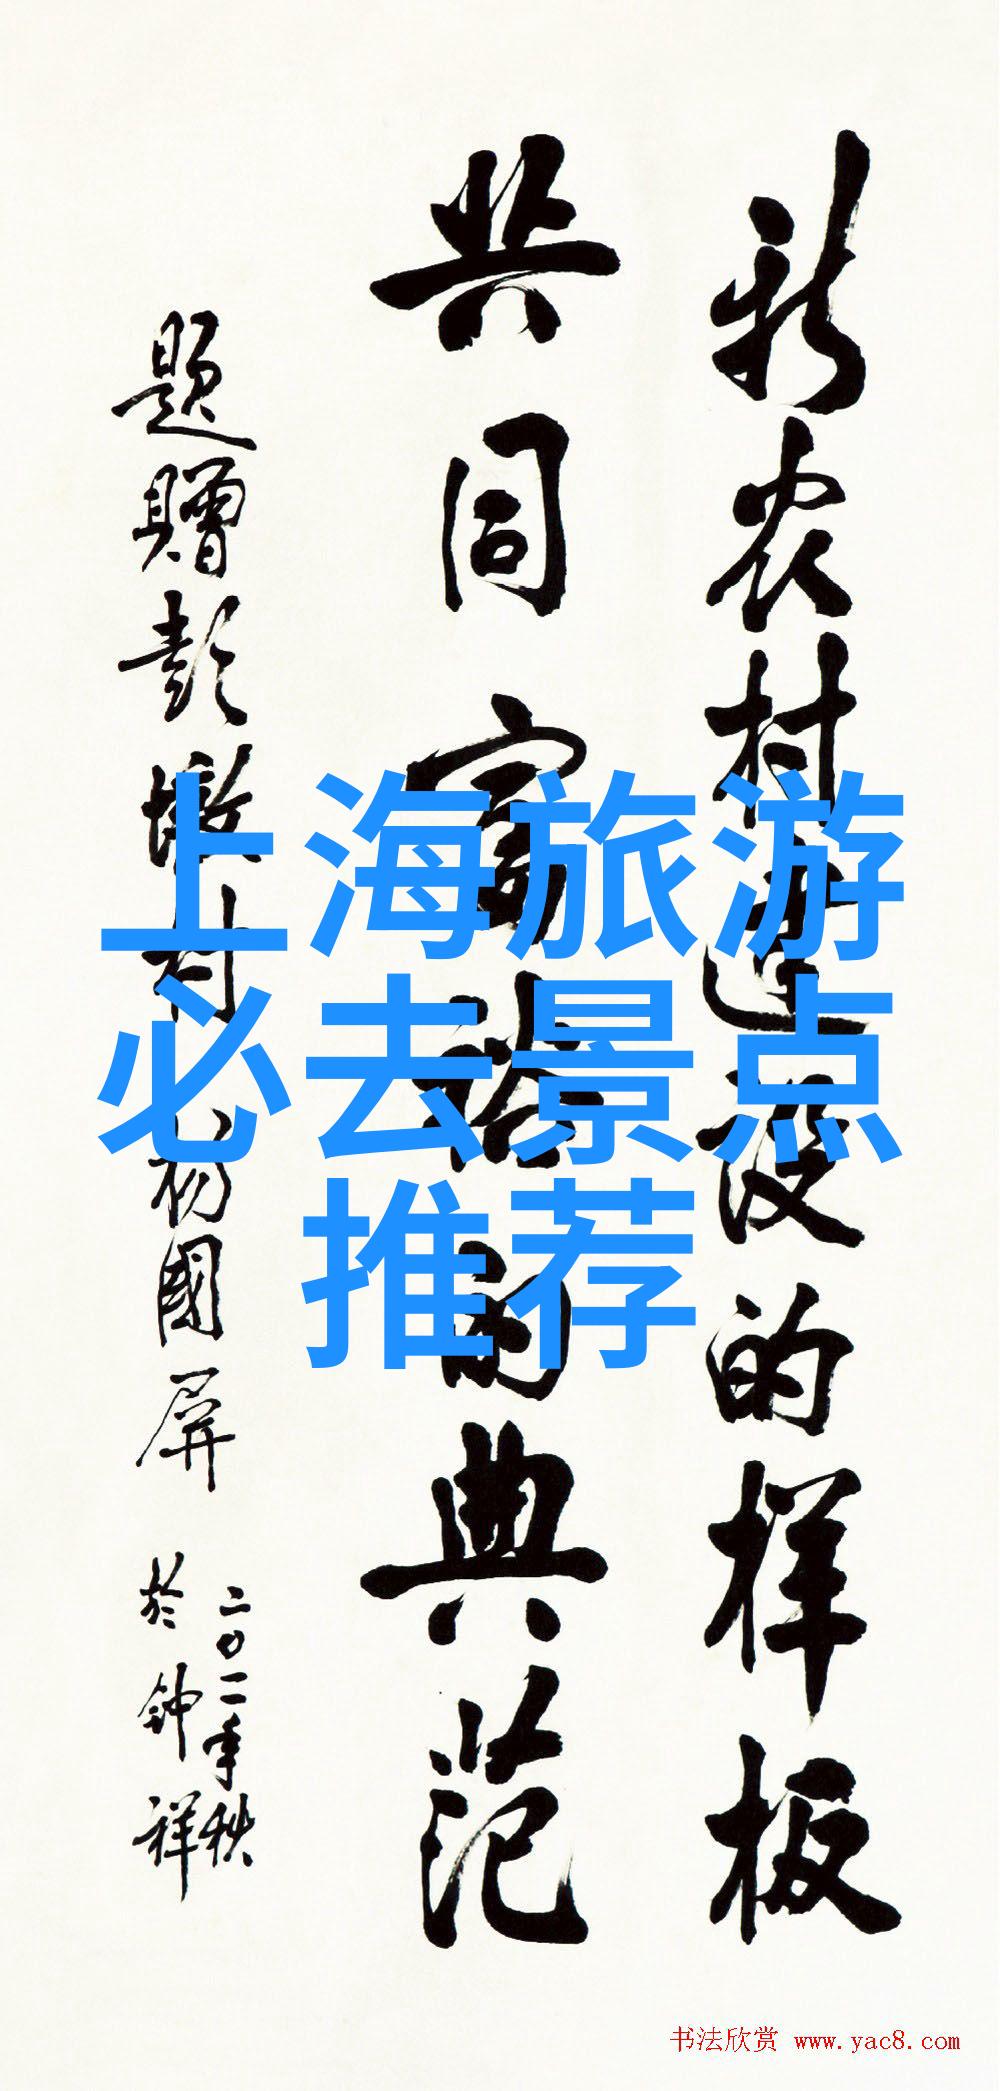 新农村建设的样板
共同富裕的典范
题赠彭墩村杨国屏
二〇一一年秋
於钟祥
上海旅游
必去景点
推荐
书法欣赏 www.yac8.com